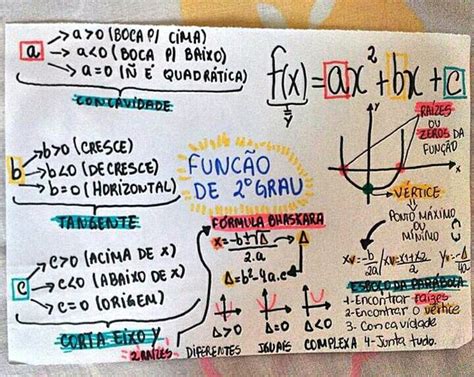 a
→ a>0 (BOCA P/ CIMA)
→ a<0 (BOCA P/ BAIXO)
→ a=0 (Ñ É QUADRÁTICA)
CONCAVIDADE
f(x) = ax² + bx + c
= y
y
x
RAIZES
OU
ZEROS DA
FUNÇÃO
b
→ b>0 (CRESCE)
→ b<0 (DECRESCE)
→ b=0 (HORIZONTAL)
TANGENTE
FUNCÃO
DE 2º GRAU
VÉRTICE
PONTO MÁXIMO
OU
MÍNIMO
FÓRMULA BHASKARA
x = -b±√Δ
2.a
Δ
Δ=b²-4.a.c
Xv = -b/2a / Xv = x1+x2/2
Yv = -Δ/4a
c
→ c>0 (ACIMA DE X)
→ c<0 (ABAIXO DE X)
→ c=0 (ORIGEM)
CORTA EIXO Y
ESBOÇO DA PARÁBOLA
1-Encontrar raizes
2-Encontrar o vértice
3- Concavidade
4-Junta tudo.
Δ>0 Δ=0 Δ<0
2 RAÍZES DIFERENTES IGUAIS COMPLEXA